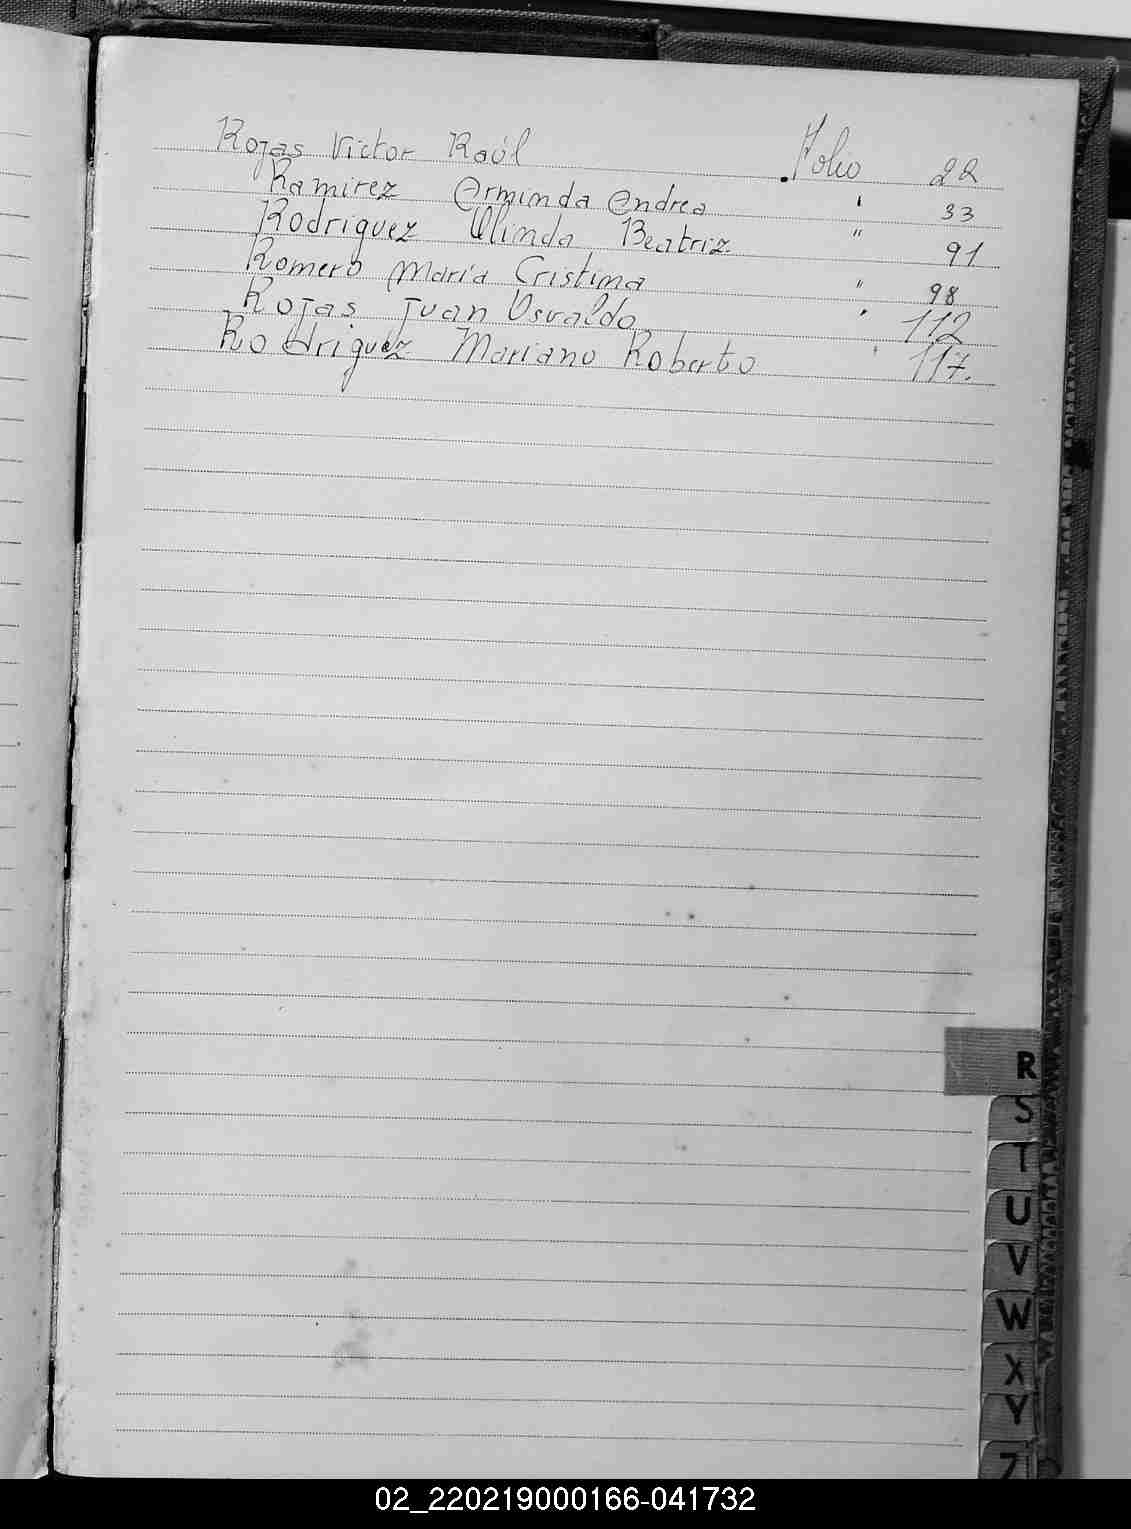 Rojas Victor Raúl Folio 22
Ramirez Erminda Andrea " 33
Rodriguez Olinda Beatriz " 91
Romero María Cristina " 98
Rojas Juan Osvaldo " 112
Rodriguez Mariano Roberto " 117.
R
S
T
U
V
W
X
Y
Z
02_220219000166-041732